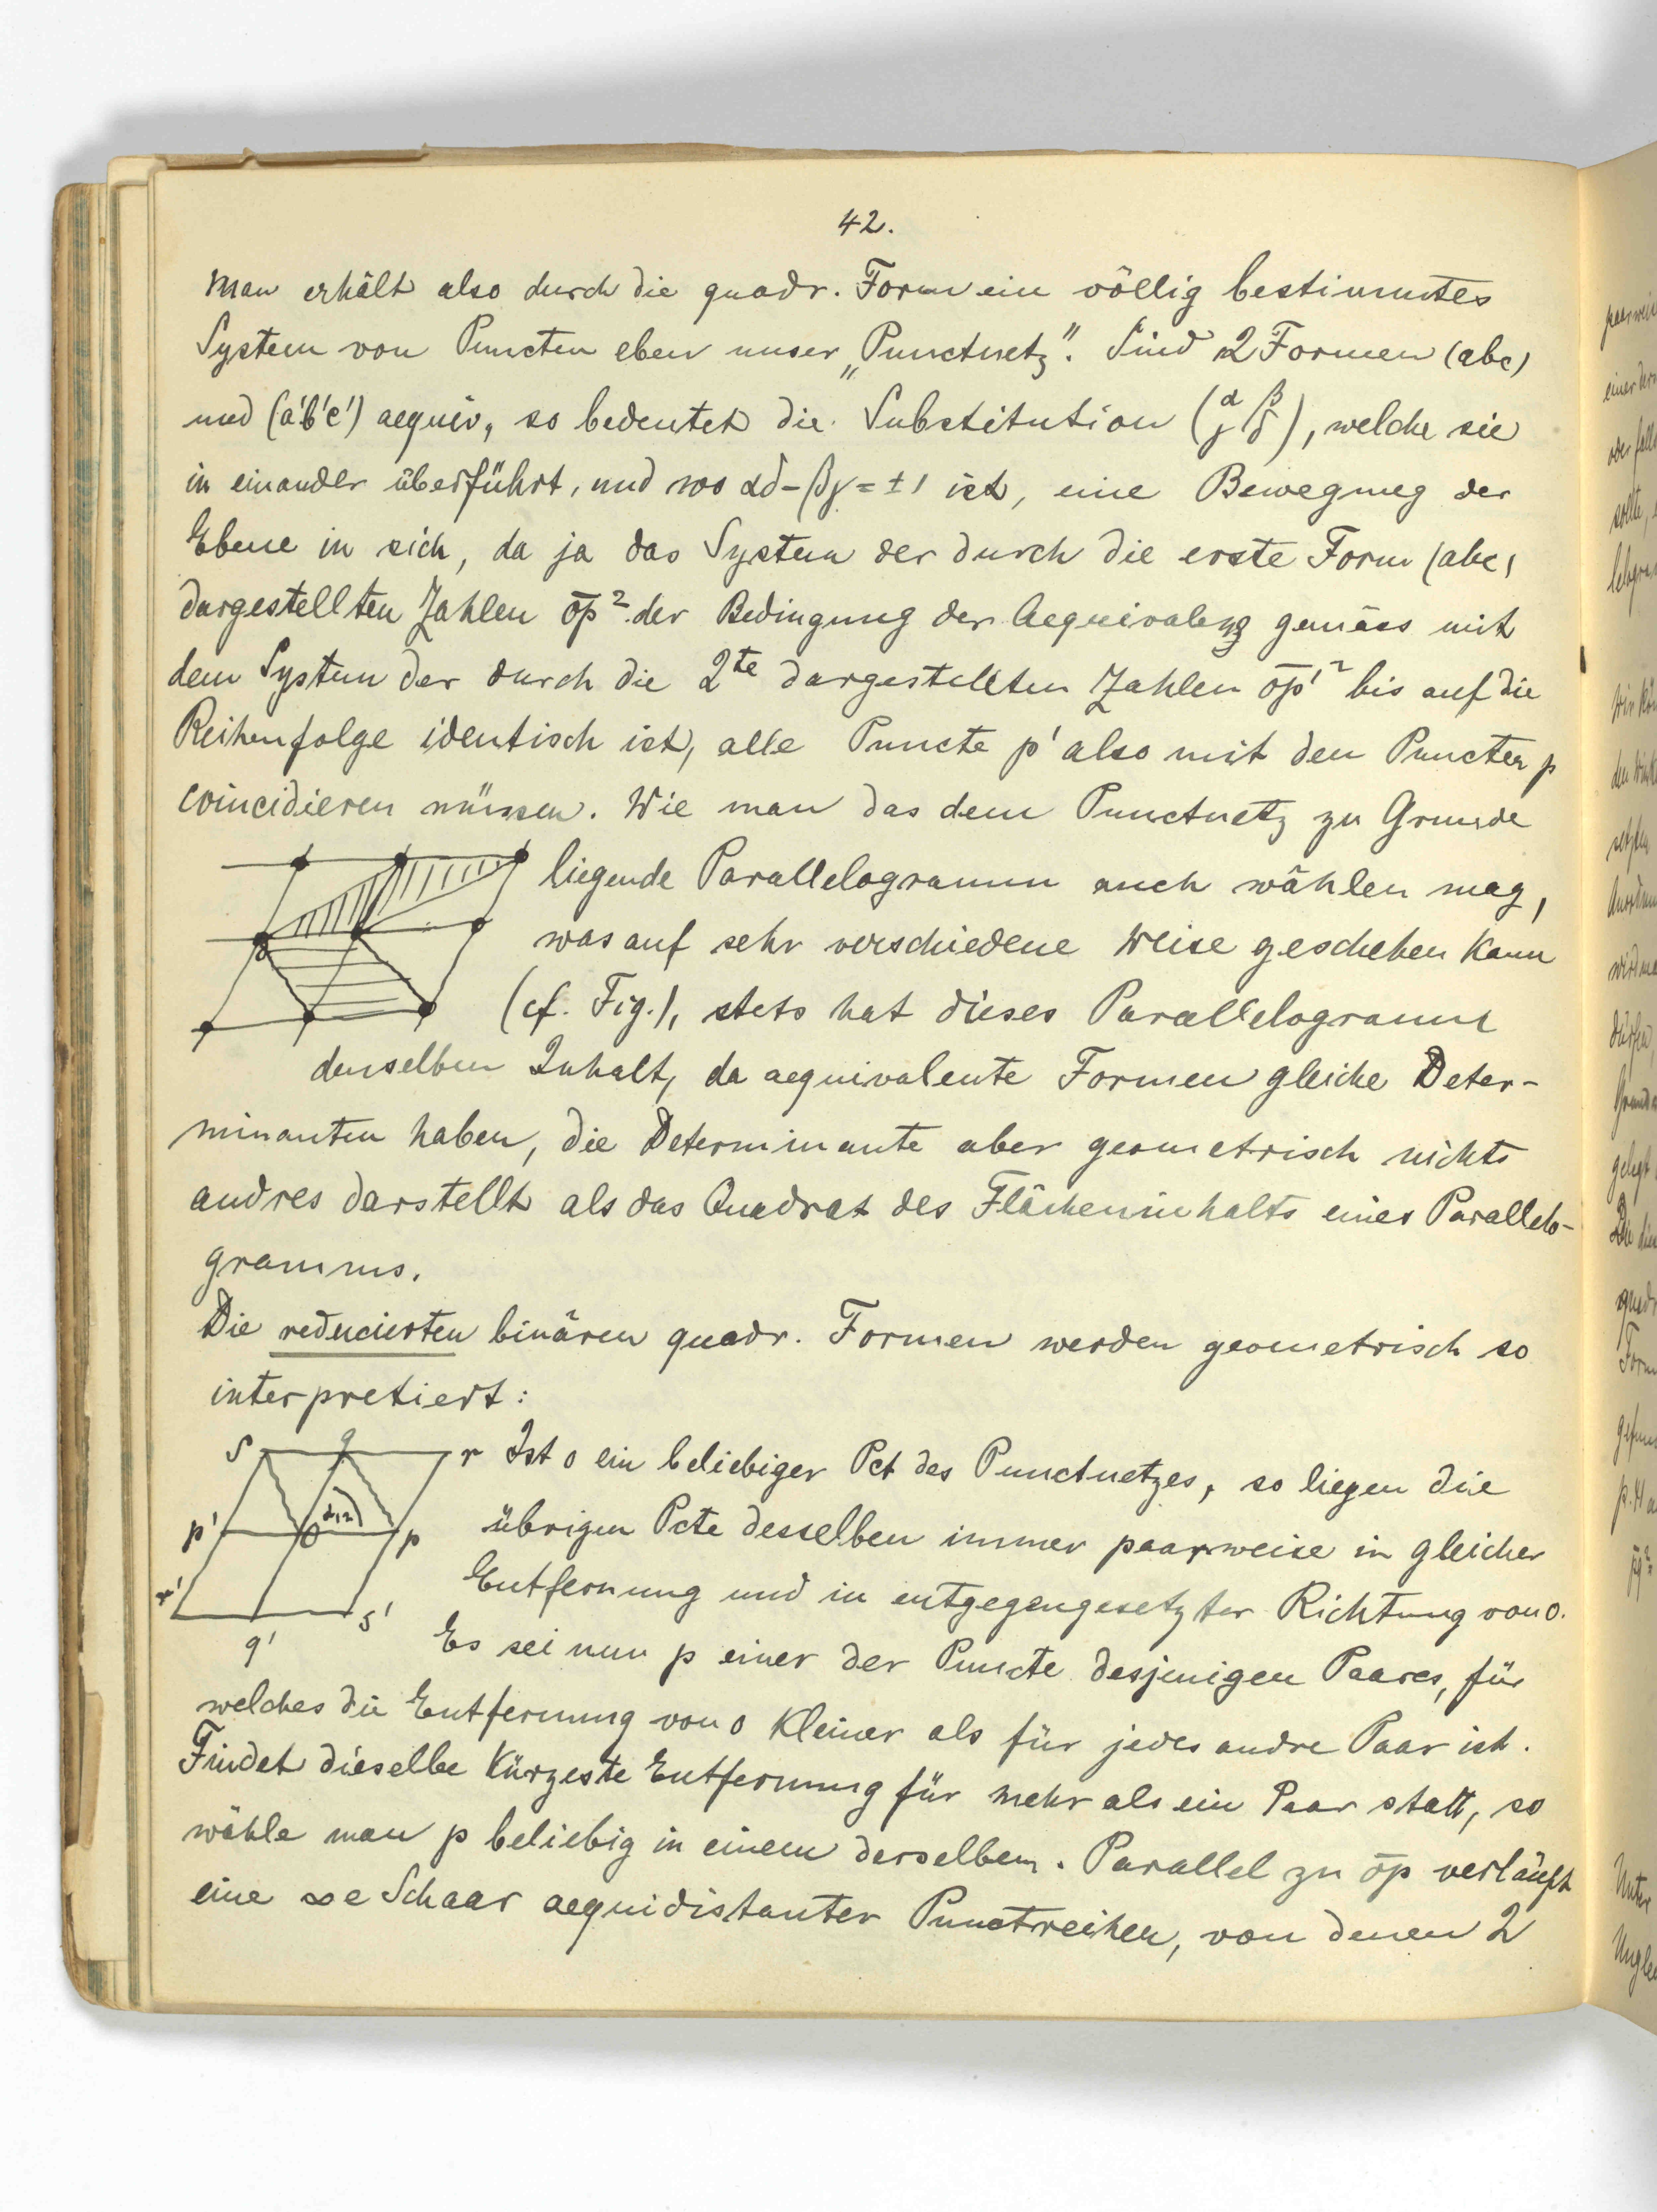 42.
Man erhält also durch die quadr. Form ein völlig bestimmtes
System von Puncten eben unser „Punctnetz“. Sind 2 Formen (abc)
und (a'b'c') aequiv, so bedeutet die Substitution (α β γ δ), welche sie
in einander überführt, und wo αδ-βγ=±1 ist, eine Bewegung der
Ebene in sich, da ja das System der durch die erste Form (abc)
dargestellten Zahlen op² der Bedingung der Aequivalenz gemäss mit
dem System der durch die 2te dargestellten Zahlen op'² bis auf die
Reihenfolge identisch ist, alle Puncte p' also mit den Puncten p
coincidieren müssen. Wie man das dem Punctnetz zu Grunde
liegende Parallelogramm auch wählen mag,
was auf sehr verschiedene Weise geschehen kann
(cf. Fig.), stets hat dieses Parallelogramm
denselben Inhalt, da aequivalente Formen gleiche Deter-
minanten haben, die Determinante aber geometrisch nichts
andres darstellt als das Quadrat des Flächeninhalts eines Parallelo-
gramms.
Die reducierten binären quadr. Formen werden geometrisch so
interpretiert:
s q r
p' o α12 p
r' q' s'
Ist o ein beliebiger Pct des Punctnetzes, so liegen die
übrigen Pcte desselben immer paarweise in gleicher
Entfernung und in entgegengesetzter Richtung von o.
Es sei nun p einer der Puncte desjenigen Paares, für
welches die Entfernung von o kleiner als für jedes andre Paar ist.
Findet dieselbe kürzeste Entfernung für mehr als ein Paar statt, so
wähle man p beliebig in einem derselben. Parallel zu op verläuft
eine ∞e Schaar aequidistanter Punctreihen, von denen 2